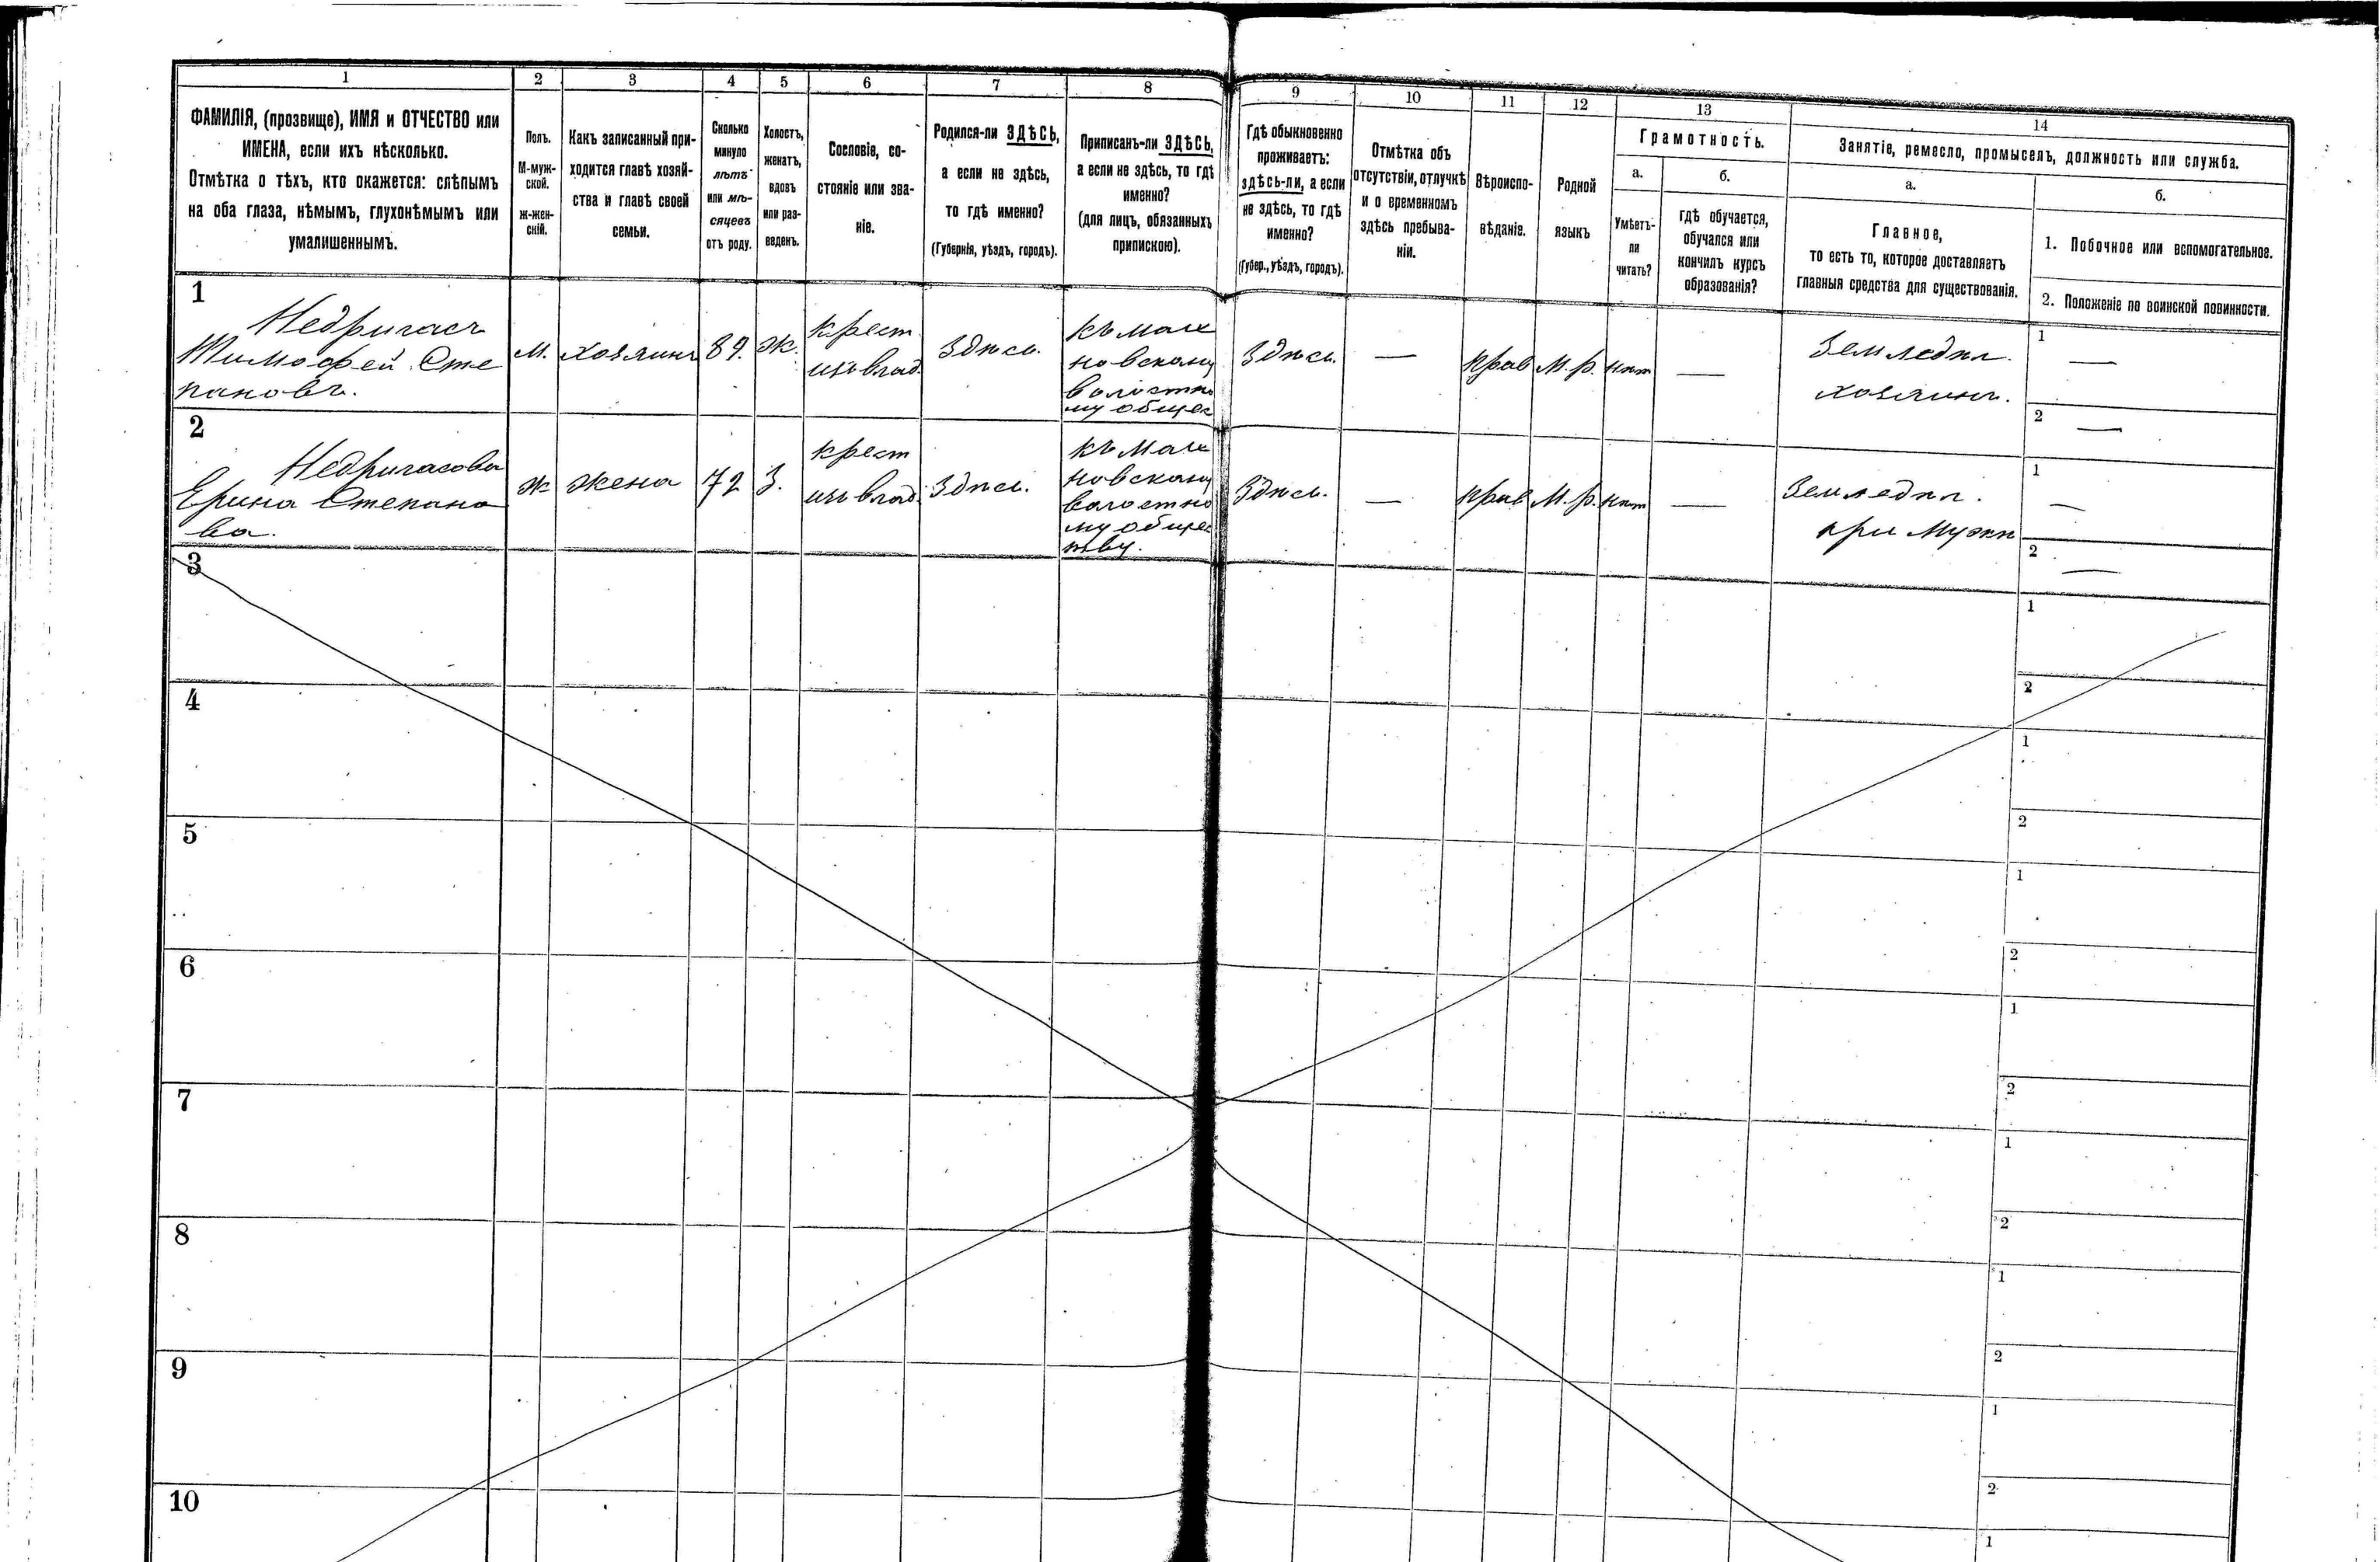 1
2
3
4
5
6
7
8
9
10
11
12
13
14
ФАМИЛІЯ, (прозвище), ИМЯ и ОТЧЕСТВО или
ИМЕНА, если ихъ нѣсколько.
Отмѣтка о тѣхъ, кто окажется: слѣпымъ
на оба глаза, нѣмымъ, глухонѣмымъ или
умалишеннымъ.
Полъ.
М-муж-
ской.
ж-жен-
скій.
Какъ записанный при-
ходится главѣ хозяй-
ства и главѣ своей
семьи.
Сколько
минуло
лѣтъ
или мѣ-
сяцевъ
отъ роду.
Холостъ,
женатъ,
вдовъ
или раз-
веденъ.
Сословіе, со-
стояніе или зва-
ніе.
Родился-ли ЗДѢСЬ,
а если не здѣсь,
то гдѣ именно?
(Губернія, уѣздъ, городъ).
Приписанъ-ли ЗДѢСЬ,
а если не здѣсь, то гдѣ
именно?
(для лицъ, обязанныхъ
припискою).
Гдѣ обыкновенно
проживаетъ:
здѣсь-ли, а если
не здѣсь, то гдѣ
именно?
(Губер., уѣздъ, городъ).
Отмѣтка объ
отсутствіи, отлучкѣ
и о временномъ
здѣсь пребыва-
ніи.
Вѣроиспо-
вѣданіе.
Родной
языкъ
Грамотность.
а.
б.
Умѣетъ-
ли
читать?
гдѣ обучается,
обучался или
кончилъ курсъ
образованія?
Занятіе, ремесло, промыселъ, должность или служба.
а.
б.
Главное,
то есть то, которое доставляетъ
главныя средства для существованія.
1. Побочное или вспомогательное.
2. Положеніе по воинской повинности.
1
Недригасъ
Тимофей Сте
пановъ.
М.
хозяинъ
89.
Ж.
крест
изъ влад.
Здѣсь.
новскому
волостно
му общес
Здѣсь.
—
прав
М. р.
нѣт
—
Земледѣл.
хозяинъ.
1
—
2
—
2
Недригасова
Ерина Степано
ва.
Ж
жена
72
З.
крест
изъ влад.
Здѣсь.
новскому
волостно
му общес
тву.
Здѣсь.
—
прав
М. р.
нѣт
—
Земледѣл.
при мужѣ
1
—
2
—
3
1
2
4
1
2
5
1
2
6
1
2
7
1
2
8
1
2
9
1
2
10
1